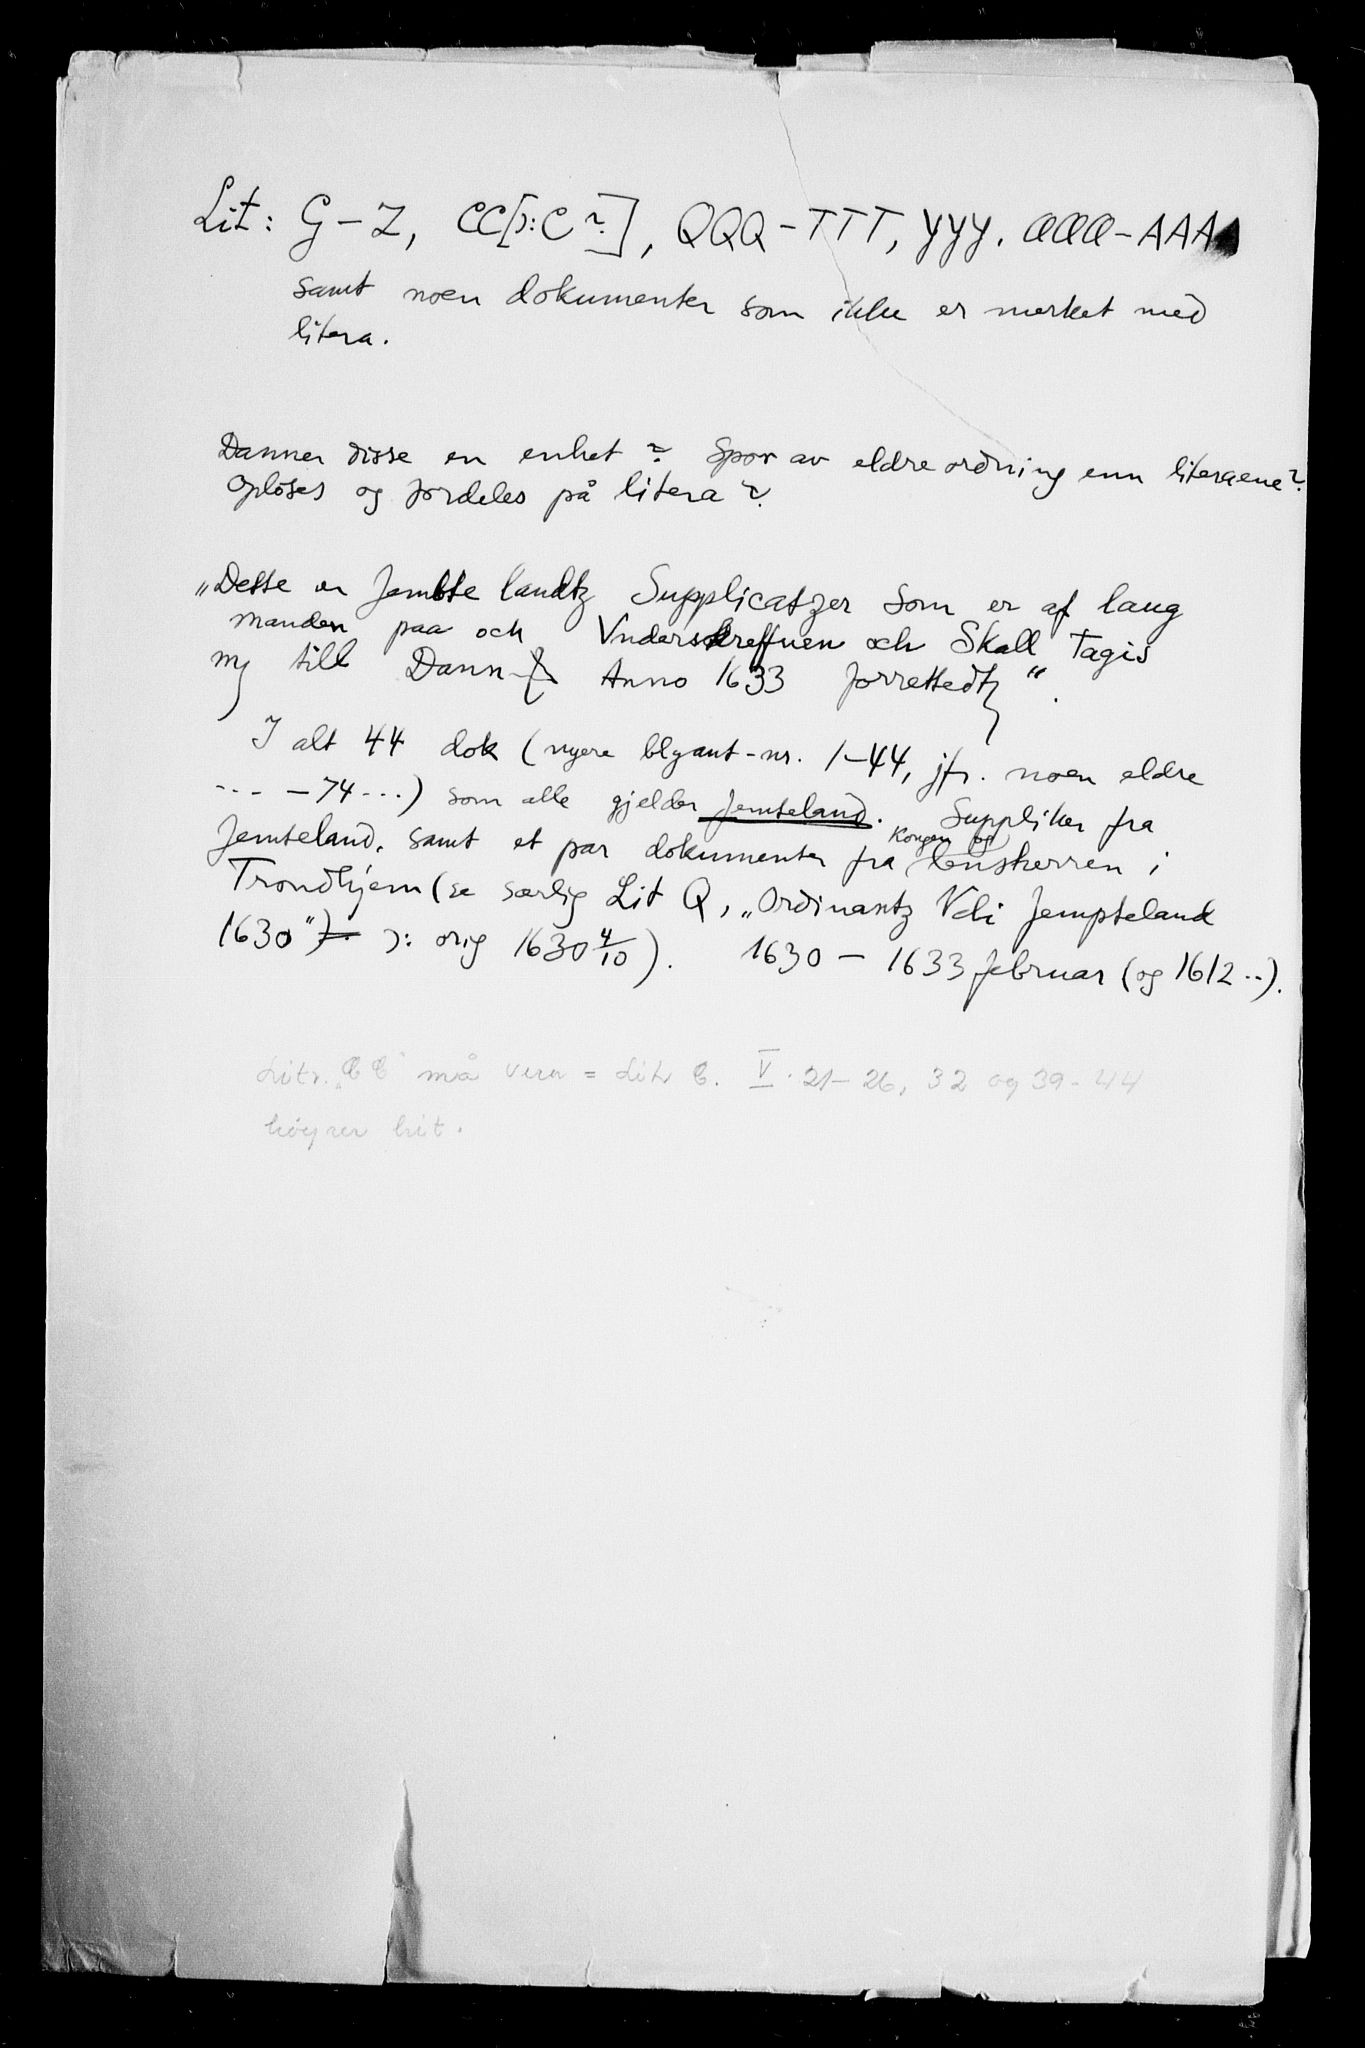 Lit: G – Z, CC[ɔ: C?], QQQ – TTT, YYY. aaa – AAA
samt noen dokumenter som ikke er merket med
litera.
Danner disse en enhet? Spor av eldre ordning enn literaene?
Opløses og fordeles på litera?
„Desse er Jembte landtz Supplicatzer Som er af laug
manden paa och Vnderskreffuen och Skall Tagis
till Dann Anno 1633 forrettedtz“.
I alt 44 dok (nyere blyant-nr. 1–44, jfr. noen eldre
--- –74 ---) som alle gjelder Jemteland. Suppliker fra
Jemteland, samt et par dokumenter fra Kongen og lensherren i
Trondhjem (se særlig Lit Q, „Ordinantz Vdi Jempteland
1630“ ɔ: orig 1630 4/10). 1630 – 1633 februar (og 1612 ..).
Litr. „CC“ må vera = Litr C. V. 21–26, 32 og 39–44
høyrer hit.